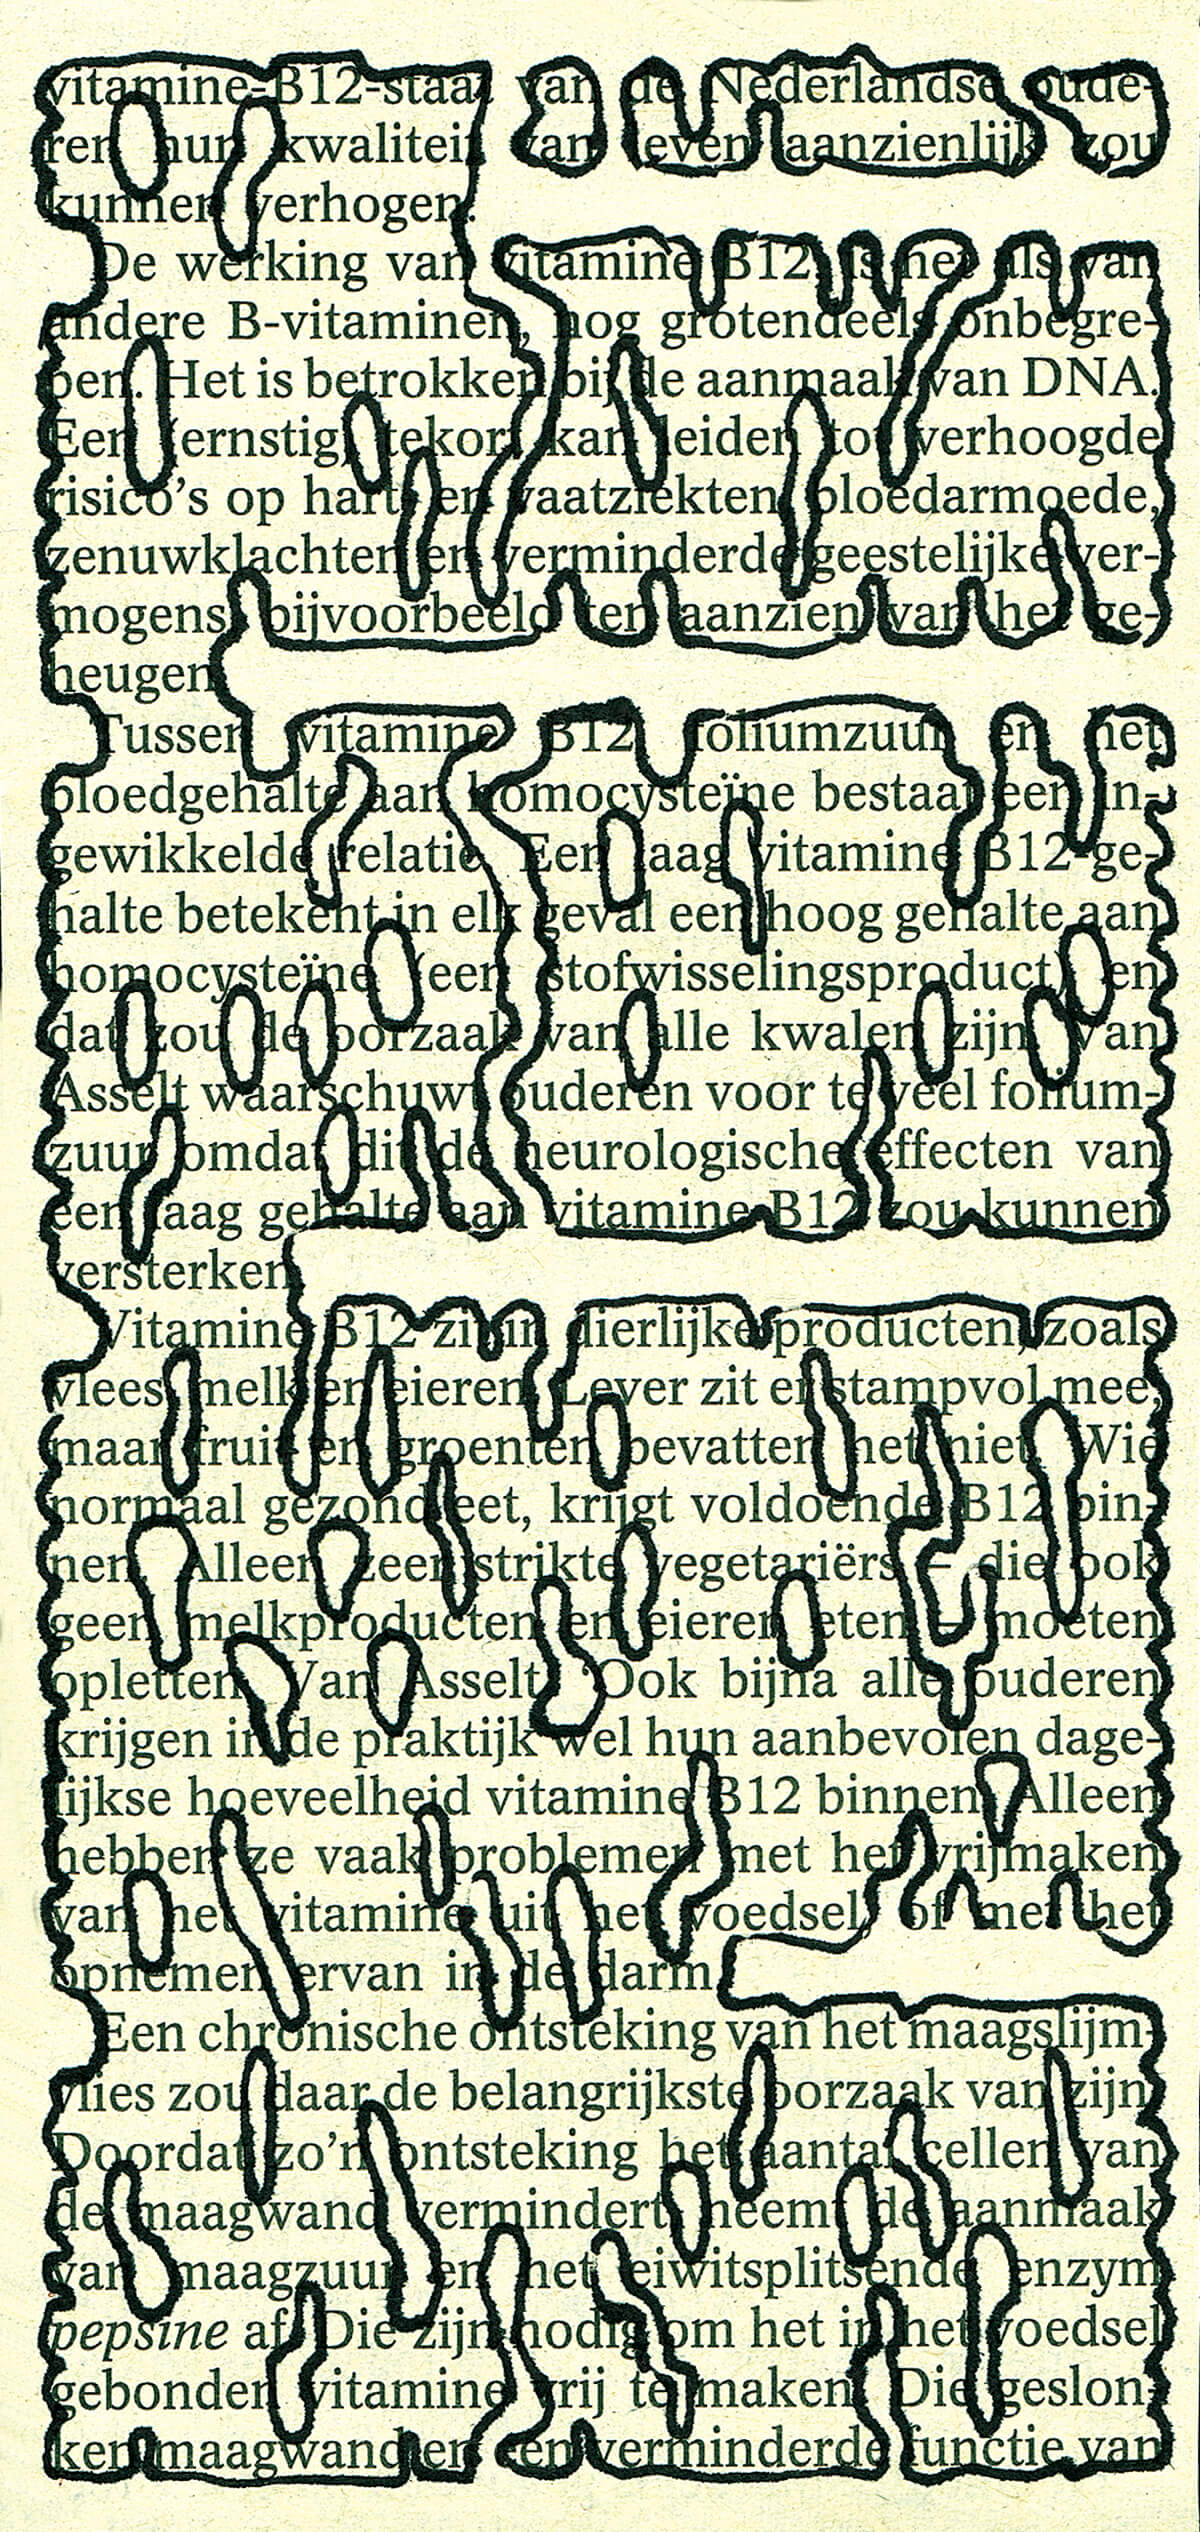 vitamine-B12-staat van de Nederlandse oude-
ren hun kwaliteit van leven aanzienlijk zou
kunnen verhogen.
De werking van vitamine B12 is net als van
andere B-vitaminen, nog grotendeels onbegre-
pen. Het is betrokken bij de aanmaak van DNA.
Een (ernstig) tekort kan leiden tot verhoogde
risico's op hart- en vaatziekten, bloedarmoede,
zenuwklachten en verminderde geestelijke ver-
mogens, bijvoorbeeld ten aanzien van het ge-
heugen.
Tussen vitamine B12, foliumzuur en het
bloedgehalte aan homocysteïne bestaat een in-
gewikkelde relatie. Een laag vitamine B12-ge-
halte betekent in elk geval een hoog gehalte aan
homocysteïne (een stofwisselingsproduct) en
dat zou de oorzaak van alle kwalen zijn. Van
Asselt waarschuwt ouderen voor te veel folium-
zuur, omdat dit de neurologische effecten van
een laag gehalte aan vitamine B12 zou kunnen
versterken.
Vitamine B12 zit in dierlijke producten, zoals
vlees, melk en eieren. Lever zit er stampvol mee,
maar fruit en groenten bevatten het niet. Wie
normaal gezond eet, krijgt voldoende B12 bin-
nen. Alleen zeer strikte vegetariërs – die ook
geen melkproducten en eieren eten – moeten
opletten. Van Asselt: 'Ook bijna alle ouderen
krijgen in de praktijk wel hun aanbevolen dage-
lijkse hoeveelheid vitamine B12 binnen. Alleen
hebben ze vaak problemen met het vrijmaken
van het vitamine uit het voedsel, of met het
opnemen ervan in de darm.'
Een chronische ontsteking van het maagslijm-
vlies zou daar de belangrijkste oorzaak van zijn.
Doordat zo'n ontsteking het aantal cellen van
de maagwand vermindert, neemt de aanmaak
van maagzuur en het eiwitsplitsende enzym
pepsine af. Die zijn nodig om het in het voedsel
gebonden vitamine vrij te maken. Die geslon-
ken maagwand en een verminderde functie van